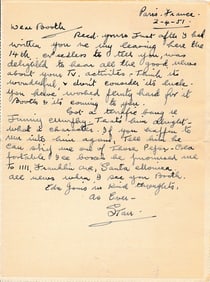 Paris. France.
2-4-51.
Dear Booth
Recd. yours Just after I had
written you re my leaving here the
14th. Needless to tell you was
delighted to hear all the good news
about your T.V. activities. Think its
wonderful & don't consider its luck.
You have worked plenty hard for it
Booth & its coming to you.
Got a terrific bang re
Jimmy
what a character. If you happen to
run into him again, Tell him he
can ship me one of Those Pepsi-Cola
portable Ice boxes he promised me
to 1111 Franklin Ave, Santa Monica.
all news when I see you Booth.
Eda Joins in Kind thoughts.
As Ever-
Stan.